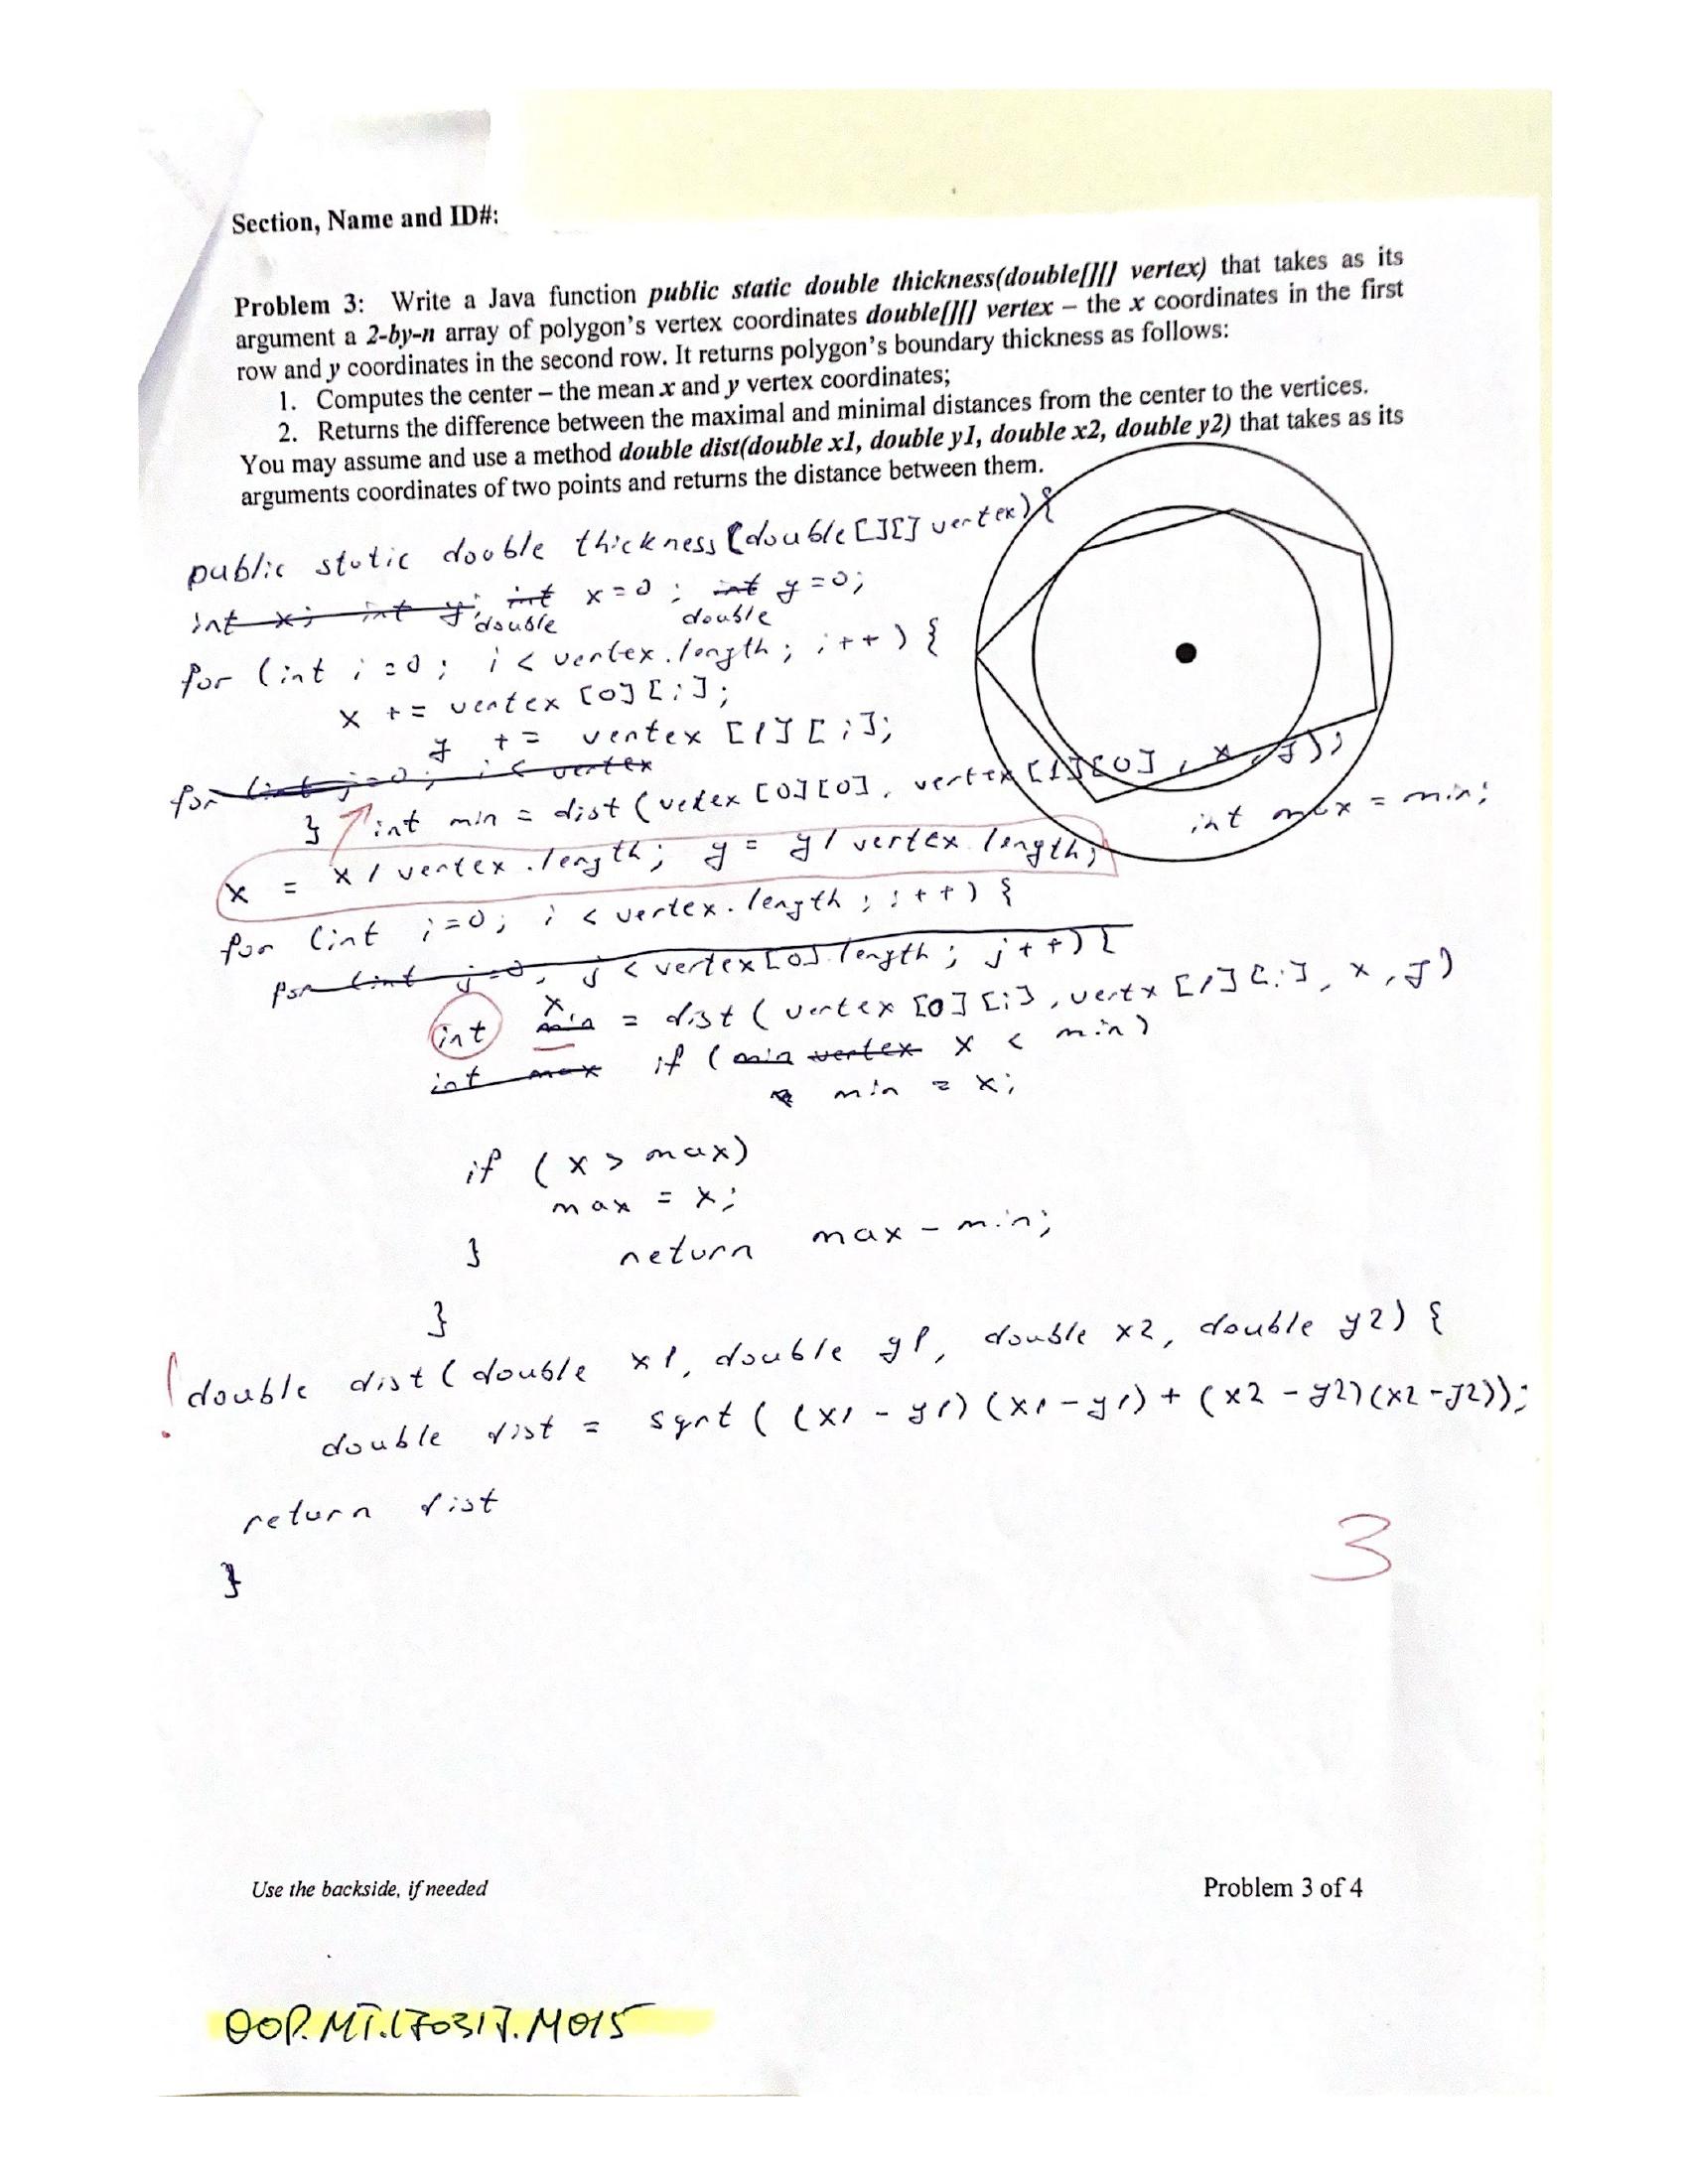 Section, Name and ID#:
Problem 3: Write a Java function public static double thickness(double[][] vertex) that takes as its
argument a 2-by-n array of polygon's vertex coordinates double[][] vertex – the x coordinates in the first
row and y coordinates in the second row. It returns polygon's boundary thickness as follows:
1. Computes the center – the mean x and y vertex coordinates;
2. Returns the difference between the maximal and minimal distances from the center to the vertices.
You may assume and use a method double dist(double x1, double y1, double x2, double y2) that takes as its
arguments coordinates of two points and returns the distance between them.
public static double thickness (double [][] vertex) {
int x; int y; int x = 0; int y = 0;
double double
for (int i = 0; i < vertex.length; i++) {
x += vertex [0] [i];
y += vertex [1] [i];
for (int j = 0; i < vertex
} int min = dist (vetex [0] [0], vertex [1] [0], x, y);
int max = min;
x = x / vertex.length; y = y / vertex.length;
for (int i = 0; i < vertex.length; i++) {
for (int j = 0, j < vertex [0].length; j++) {
int min x = dist (vertex [0] [i], vertx [1] [i], x, y)
int max if (min vertex x < min)
min = x;
if (x > max)
max = x;
} return max - min;
}
! double dist (double x1, double y1, double x2, double y2) {
double dist = sqrt ((x1 - y1) (x1 - y1) + (x2 - y2) (x2 - y2));
return dist
}
3
Use the backside, if needed
Problem 3 of 4
OOP.MT.170317.M015